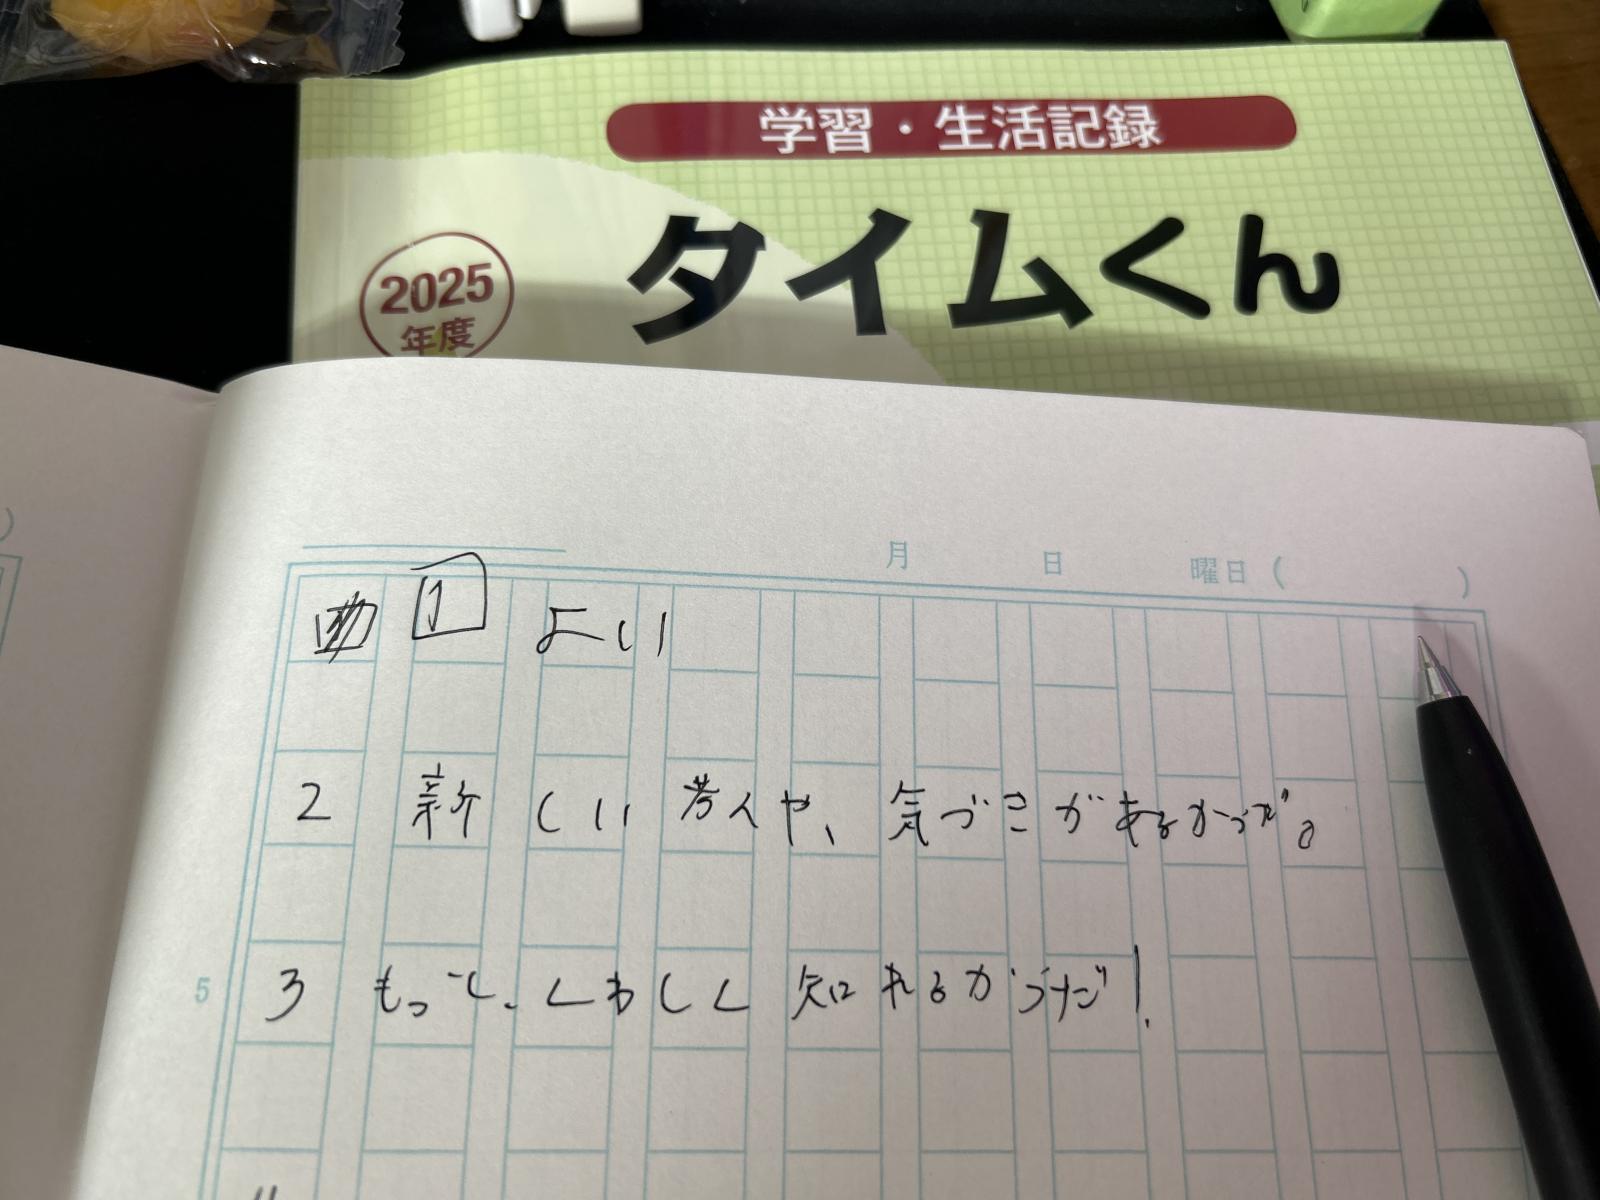 学習・生活記録
タイムくん
2025
年度
月 日 曜日( )
1 よい
2 新しい考えや、気づきがあるかうだ。
5
3 もっと、くわしく知れるがうだ!